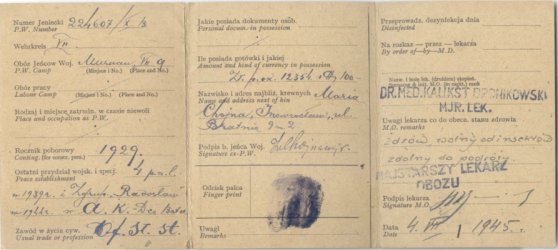 Numer Jeniecki 224607/X/3
P.W. Number
Wehrkreis VII
Obóz Jeńców Woj. Murnau VII A
P.W. Camp (Miejsce i No.) (Place and No.)
Obóz pracy
Labour Camp (Miejsce i No.) (Place and No.)
Rodzaj i miejsce zatrudn. w czasie niewoli
Place and occupation as P.W.
Rocznik poborowy 1929.
Conting. (for conscr. pers.)
Ostatni przydział wojsk. i specj. 4 p.a.l.
Peace establishment
w 1939 r. i Zgrup. Radosław
w 1944 r. w A. K. Dca Bat.
Zawód w życiu cyw. Of. St. St.
Usual trade or profession
Jakie posiada dokumenty osób.
Personal docum. in possession
Ile posiada gotówki i jakiej
Amount and kind of currency in possession
Zł. p. oz. 100
Nazwisko i adres najbliż. krewnych Maria
Name and address next of kin
Chojna, Inowrocław, ul.
Bratnia 2
Podpis b. jeńca Woj.
Signature ex-P.W.
Odcisk palca
Finger print
Uwagi
Remarks
Przeprowadz. dezynfekcja dnia
Disinfected
Na rozkaz — przez — lekarza
By order of—by—M.D.
Nazw. i imię lek.
Name
DR. MED. KALIKST DRONIKOWSKI
MJR. LEK.
Uwagi lekarza co do obecn. stanu zdrowia
M.D. remarks
zdrów wolny od insektów
zdolny do podróży.
NAJSTARSZY LEKARZ
OBOZU
Podpis lekarza
Signature M.O.
Data 4. VII 1945.
Date